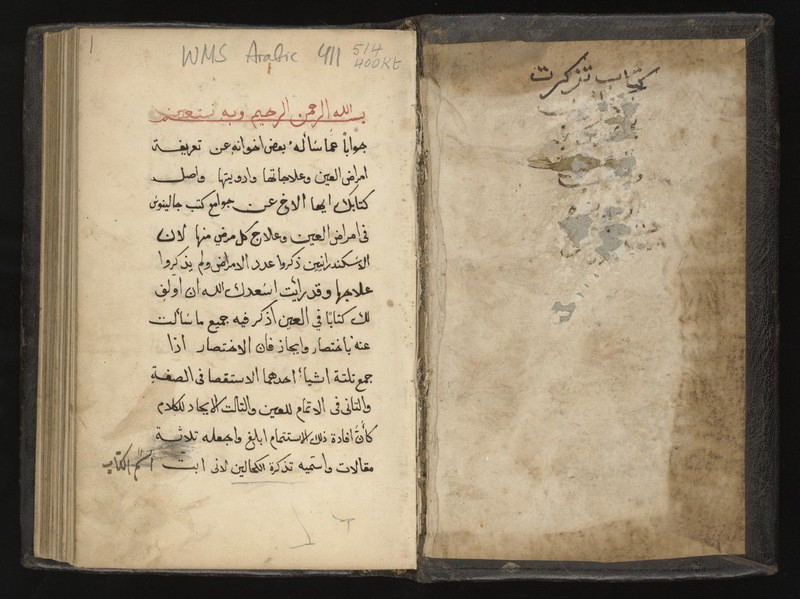 كتاب تذكرت
1
WMS Arabic 411
514
400Kt
بسم الله الرحمن الرحيم وبه نستعين
جوابا عما سأله بعض اخوانه عن تعريفة
امراض العين وعلاجاتها وادويتها واصل
كتابك ايها الاخ عن جوامع كتب جالينوس
فى امراض العين وعلاج كل مرض منها لان
الاسكندرانيين ذكروا عدد الامراض ولم يذكروا
علاجها وقد رأيت اسعدك الله ان اولف
لك كتابا في العين اذكر فيه جميع ما سألت
عنه باختصار وايجاز فان الاختصار اذا
جمع ثلثة اشياء احدهما الاستقصا فى الصفة
والثانى فى الاتمام للعين والثالث الايجاد للكلام
كأن افادة ذلك الاستتمام ابلغ واجعله ثلاثة
مقالات واسميه تذكرة الكحالين لانى ابت
اسم الكتاب